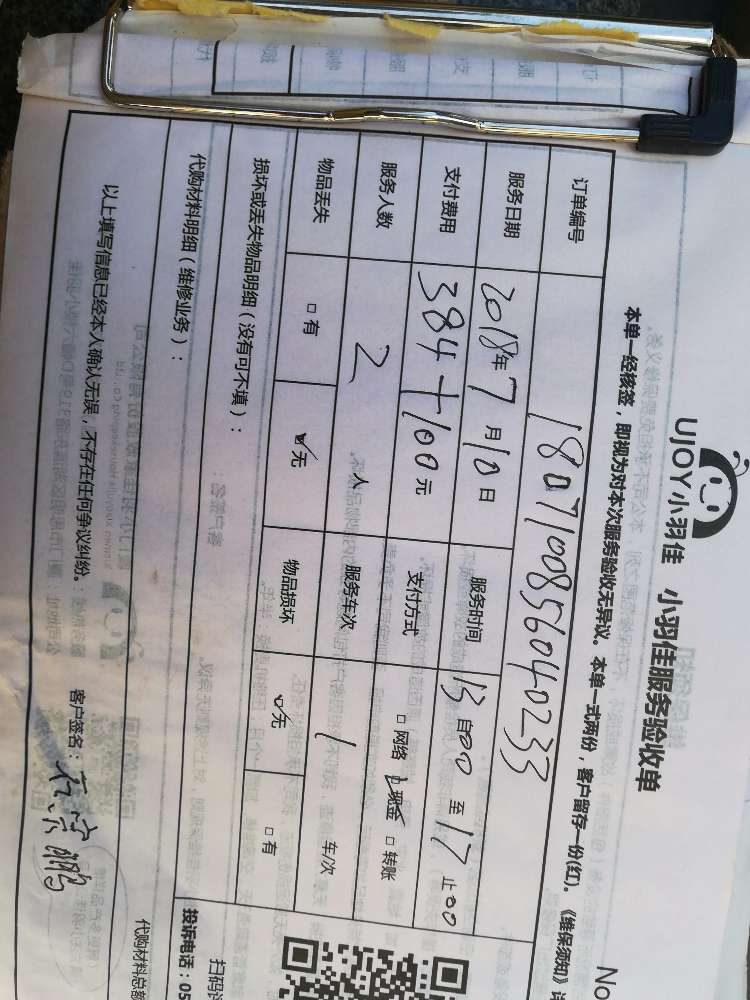 UJOY小羽佳 小羽佳服务验收单
No
本单一经核签，即视为对本次服务验收无异议。本单一式两份，客户留存一份(红)。《维保须知》
订单编号 1807100856040233
服务日期 2018年7月10日 服务时间 13自00至17止00
支付费用 384+100元 支付方式 □网络 ☑现金 □转账
服务人数 2 人 服务车次 1 车/次
物品丢失 □有 ☑无 物品损坏 ☑无 □有
损坏或丢失物品明细（没有可不填）：
代购材料明细（维修业务）：
代购材料总额
以上填写信息已经本人确认无误，不存在任何争议纠纷。 客户签名：
投诉电话：05
扫码